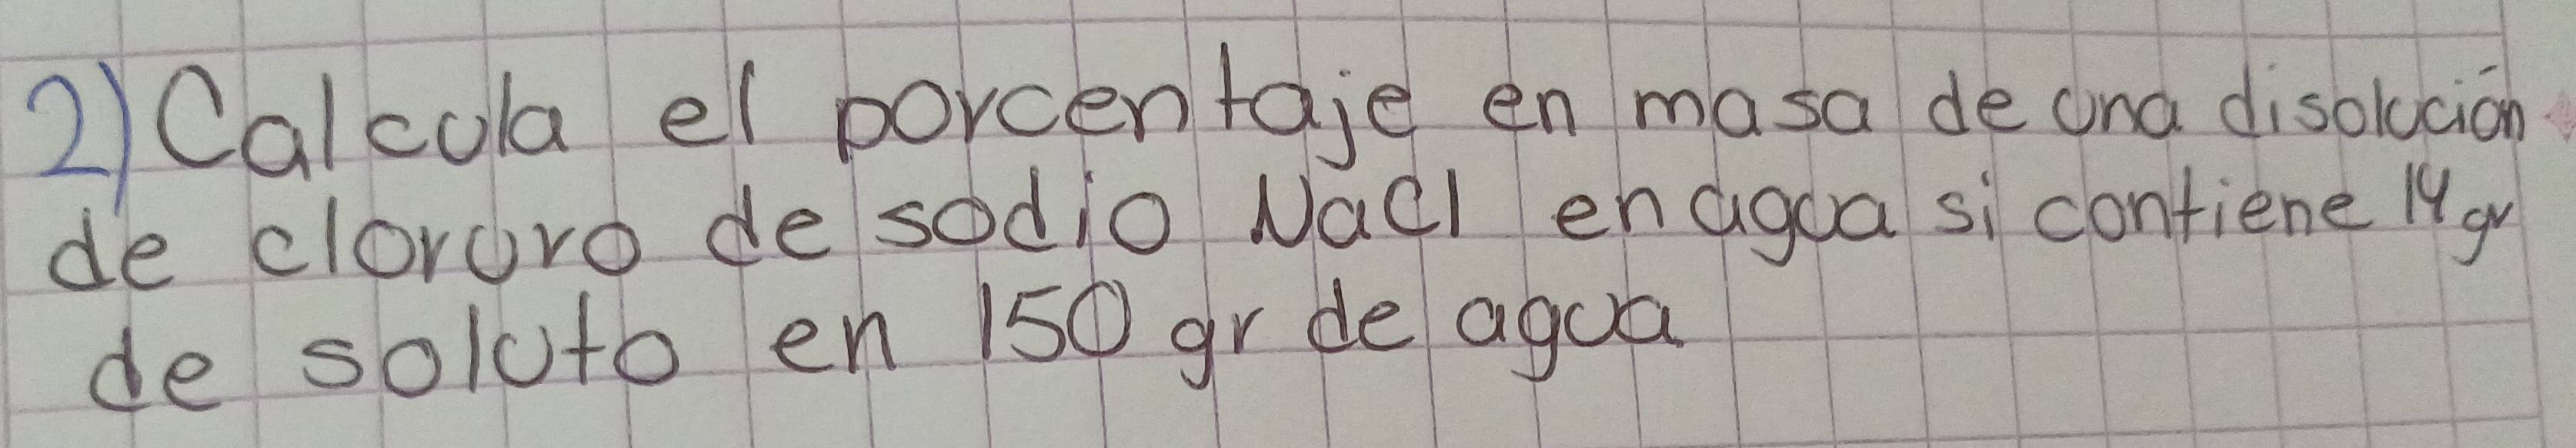 2) Calcula el porcentaje en masa de una disolución
de cloruro de sodio NaCl en agua si contiene 14 gr
de soluto en 150 gr de agua